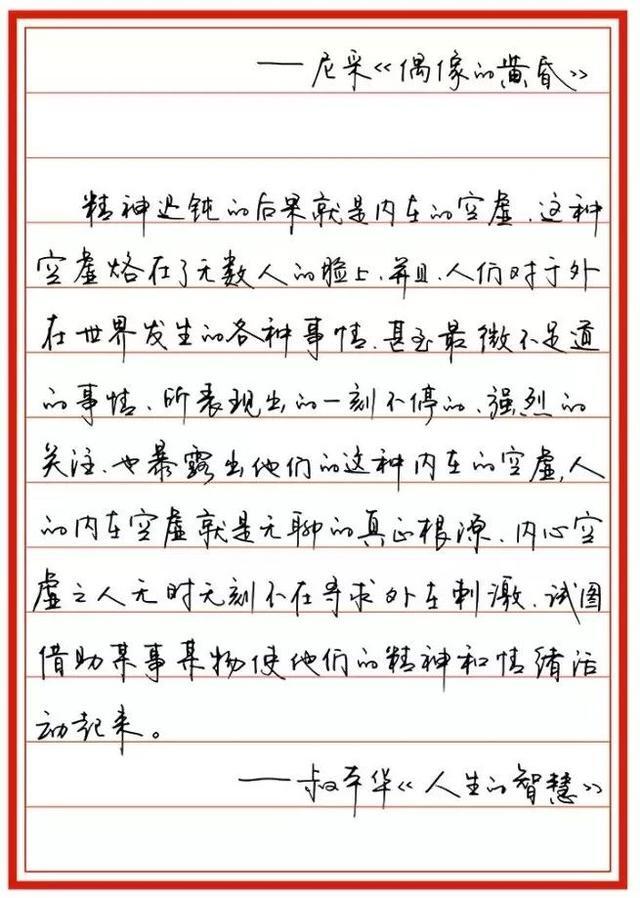 ——尼采《偶像的黄昏》
精神迟钝的后果就是内在的空虚、这种
空虚烙在了无数人的脸上、并且、人们对于外
在世界发生的各种事情、甚至最微不足道
的事情、所表现出的一刻不停的、强烈的
关注、也暴露出他们的这种内在的空虚,人
的内在空虚就是无聊的真正根源、内心空
虚之人无时无刻不在寻求外在刺激、试图
借助某事某物使他们的精神和情绪活
动起来。
——叔本华《人生的智慧》